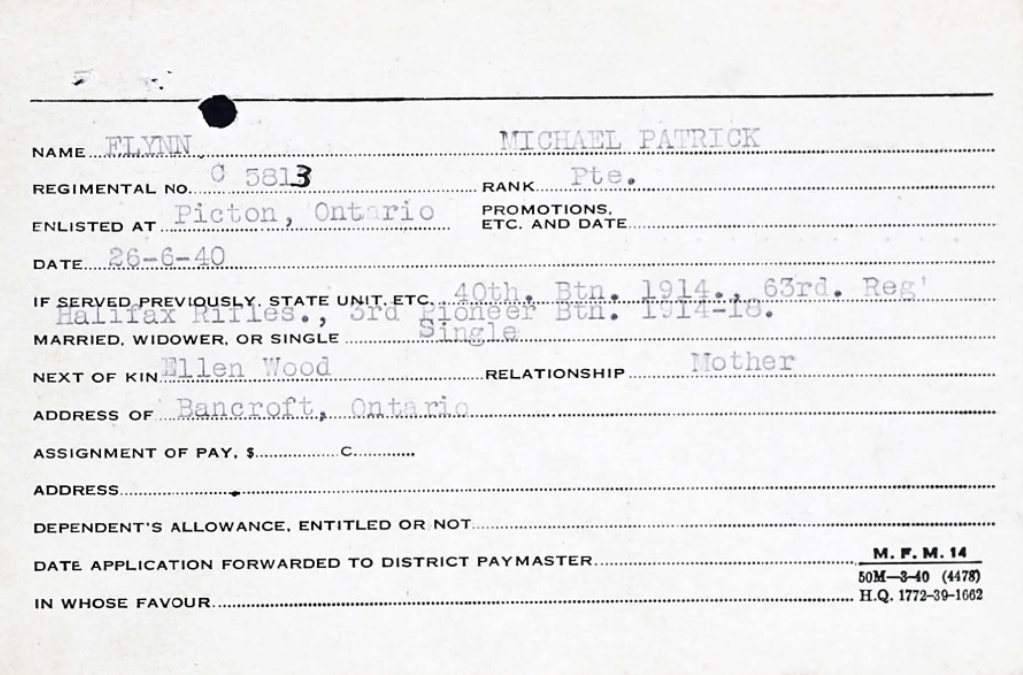 NAME FLYNN MICHAEL PATRICK
REGIMENTAL NO. C 5813 RANK Pte.
ENLISTED AT Picton, Ontario PROMOTIONS, ETC. AND DATE
DATE 26-6-40
IF SERVED PREVIOUSLY, STATE UNIT, ETC. 40th. Btn. 1914., 63rd. Reg'
Halifax Rifles., 3rd Pioneer Btn. 1914-18.
MARRIED, WIDOWER, OR SINGLE Single
NEXT OF KIN Ellen Wood RELATIONSHIP Mother
ADDRESS OF Bancroft, Ontario
ASSIGNMENT OF PAY, $ C
ADDRESS
DEPENDENT'S ALLOWANCE, ENTITLED OR NOT
DATE APPLICATION FORWARDED TO DISTRICT PAYMASTER
IN WHOSE FAVOUR
M. F. M. 14
50M—3-40 (4478)
H.Q. 1772-39-1662